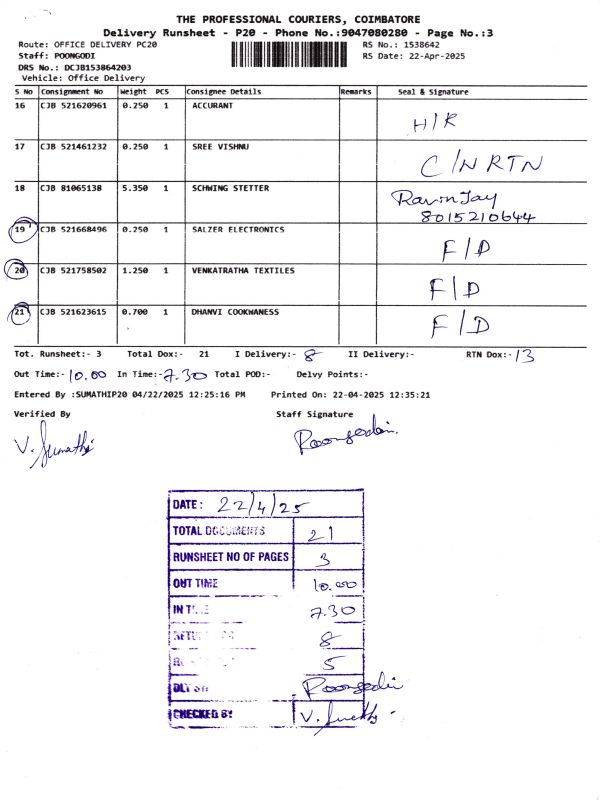 THE PROFESSIONAL COURIERS, COIMBATORE
Delivery Runsheet - P20 - Phone No.:9047080280 - Page No.:3
Route: OFFICE DELIVERY PC20 RS No.: 1538642
Staff: POONGODI RS Date: 22-Apr-2025
DRS No.: DCJB153864203
Vehicle: Office Delivery
S No Consignment No Weight PCS Consignee Details Remarks Seal & Signature
16 CJB 521620961 0.250 1 ACCURANT H/R
17 CJB 521461232 0.250 1 SREE VISHNU C/N RTN
18 CJB 81065138 5.350 1 SCHWING STETTER
8015210644
19 CJB 521668496 0.250 1 SALZER ELECTRONICS F/D
20 CJB 521758502 1.250 1 VENKATRATHA TEXTILES F/D
21 CJB 521623615 0.700 1 DHANVI COOKWANESS F/D
Tot. Runsheet:- 3 Total Dox:- 21 I Delivery:- 8 II Delivery:- RTN Dox:- 13
Out Time:- 10.00 In Time:- 7.30 Total POD:- Delvy Points:-
Entered By :SUMATHIP20 04/22/2025 12:25:16 PM Printed On: 22-04-2025 12:35:21
Verified By Staff Signature
V. Sumathi Poongodi
DATE: 22/4/25
TOTAL DOCUMENTS 21
RUNSHEET NO OF PAGES 3
OUT TIME 10.00
IN TIME 7.30
8
5
Poongodi
CHECKED BY V. Sumathi